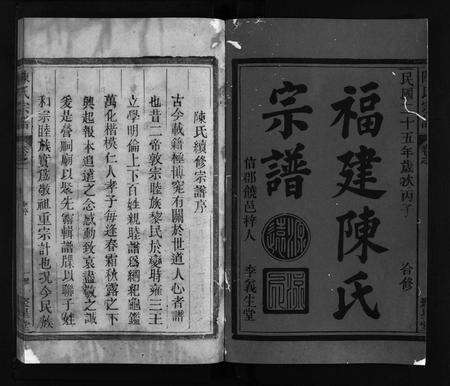 民國二十五年歲次丙子
合修
福建陳氏
宗譜
信郡饒邑梓人
李義生堂
陳氏續修宗譜序
古今載籍極博寃有關於世道人心者譜
也昔二帝敦宗睦族黎民於變時雍三王
立學明倫上下百姓親睦譜爲綱紀龜鑑
萬化楷模仁人孝子每逢春霜秋露之下
興起報本追遠之念感動致哀盡敬之誠
爰是營嗣廟以聚先靈輯譜牒以聯子姓
和宗睦族實爲敬祖重宗計也現今民族